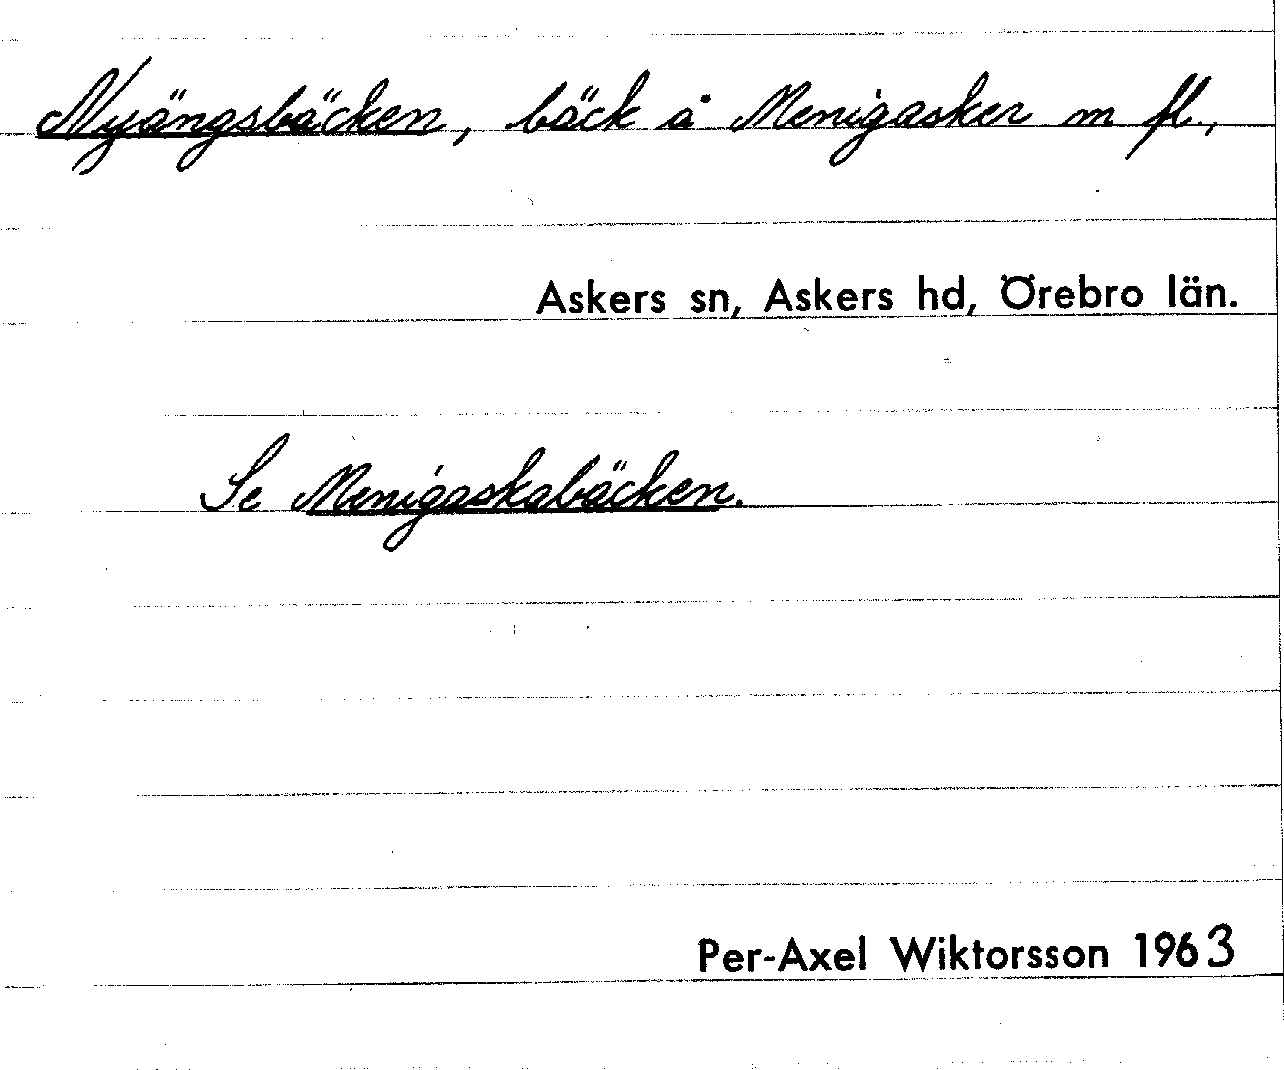 Nyängsbäcken, bäck å Menigasker m fl.,
Askers sn, Askers hd, Örebro län.
Se Menigaskabäcken.
Per-Axel Wiktorsson 1963